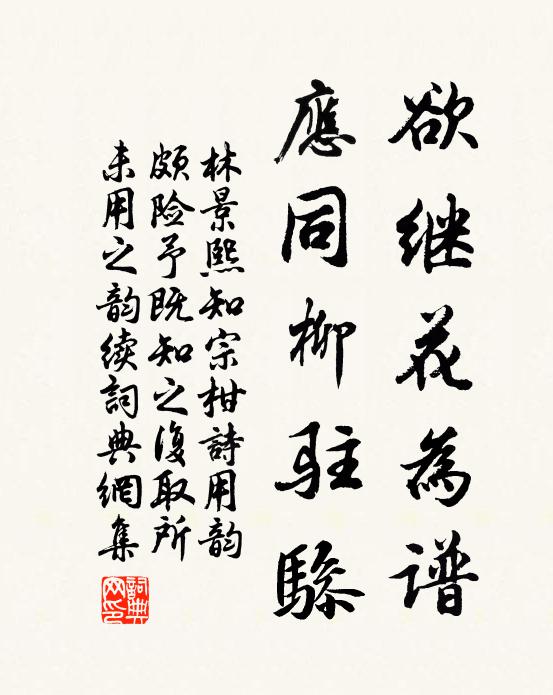 欲继花為谱
應同柳驻骖
林景熙知宗柑詩用韵
颇险予既知之復取所
未用之韵续詞典網集
詞典網印